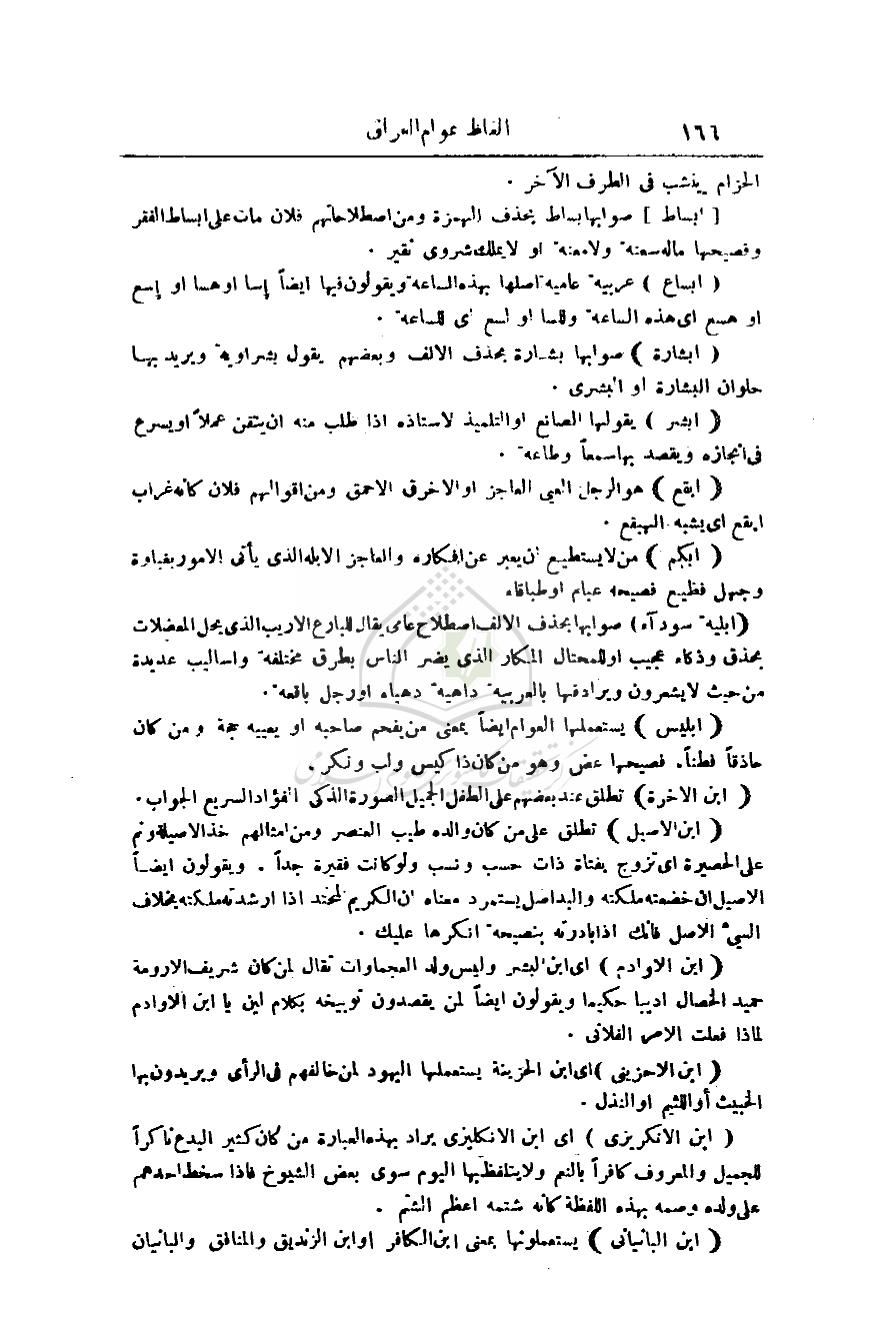 ١٦٦ الفاظ عوام العراق
الحزام ينشب فى الطرف الآخر ٠
[ ابساط ] صوابها بساط بحذف الهمزة ومن اصطلاحاتهم فلان مات على ابساط الفقر
وفصيحها ماله سعنة ولا معنة او لا يملك شروى نقير ٠
( ابساع ) عربية عامية اصلها بهذه الساعة ويقولون فيها ايضاً إسا او هسا او إسع
او هسع اى هذه الساعة وللسا او لسع اى للساعة ٠
( ابشارة ) صوابها بشارة بحذف الالف وبعضهم يقول بشراوية ويريد بها
حلوان البشارة او البشرى ٠
( ابشر ) يقولها الصانع او التلميذ لاستاذه اذا طلب منه ان يتقن عملاً او يسرع
فى انجازه ويقصد بها سمعاً وطاعة ٠
( ابقع ) هو الرجل العيي العاجز او الاخرق الاحمق ومن اقوالهم فلان كانه غراب
ابقع اى يشبه الهبقع ٠
( ابكم ) من لا يستطيع ان يعبر عن افكاره والعاجز الابله الذى يأتى الامور بغباوة
وجهل فظيع فصيحه عيام او طباقاء
(ابلية سودآء) صوابها بحذف الالف اصطلاح عامى يقال للبارع الاريب الذى يحل المعضلات
بحذق وذكاء عجيب او للمحتال المكار الذى يضر الناس بطرق مختلفة واساليب عديدة
من حيث لا يشعرون ويرادفها بالعربية داهية دهياء او رجل باقعة ٠
( ابليس ) يستعملها العوام ايضاً بمعنى من يفحم صاحبه او يعييه حجة ومن كان
حاذقاً فطناً. فصيحها عض وهو من كان ذا كيس ولب ونكر.
( ابن الاخرة) تطلق عند بعضهم على الطفل الجميل الصورة الذكى الفؤاد السريع الجواب ٠
( ابن الاصيل ) تطلق على من كان والده طيب العنصر ومن امثالهم خذ الاصيلة ونم
على الحصيرة اى تزوج بفتاة ذات حسب ونسب ولو كانت فقيرة جداً . ويقولون ايضاً
الاصيل ان خضمته ملكته والبداصل يستمرد معناه ان الكريم المحتد اذا ارشدته ملكته بخلاف
السيء الاصل فانك اذا بادرته بنصيحة انكرها عليك ٠
( ابن الاوادم ) اى ابن البشر وليس ولد العجماوات تقال لمن كان شريف الارومة
حميد الخصال اديبا حكيما ويقولون ايضاً لمن يقصدون توبيخه بكلام لين يا ابن الاوادم
لماذا فعلت الامر الفلانى ٠
( ابن الاحزينى ) اى ابن الحزينة يستعملها اليهود لمن خالفهم فى الرأى ويريدون بها
الخبيث أو اللئيم او النذل ٠
( ابن الانكريزى ) اى ابن الانكليزى يراد بهذه العبارة من كان كثير البدع ناكراً
للجميل والمعروف كافراً بالنعم ولا يتلفظ بها اليوم سوى بعض الشيوخ فاذا سخط احدهم
على ولده وصمه بهذه اللفظة كانه شتمه اعظم الشتم .
( ابن البانيانى ) يستعملونها بمعنى ابن الكافر او ابن الزنديق والمنافق والبانيان
مركز تحقيقات كامپيوترى علوم اسلامى